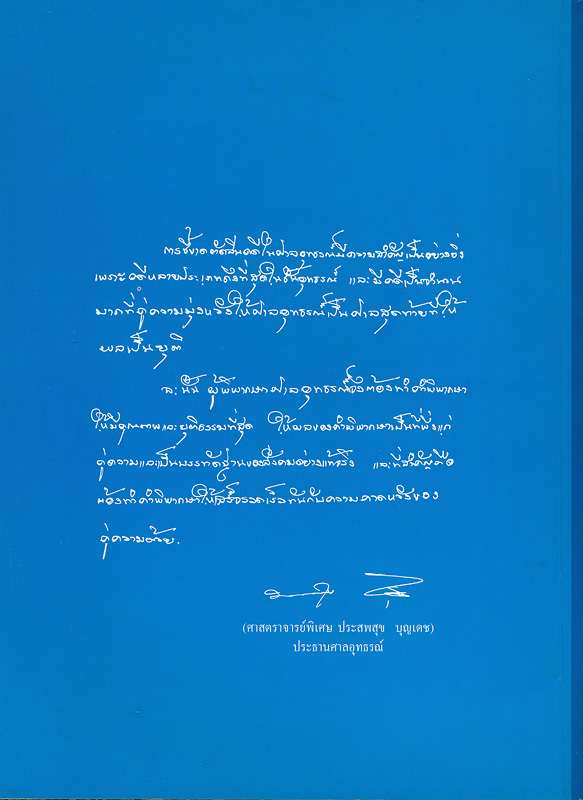 การชี้ขาดตัดสินคดีในศาลอุทธรณ์มีความสำคัญเป็นอย่างยิ่ง
เพราะคดีหลายประเภทถึงที่สุดในชั้นอุทธรณ์ และมีคดีเป็นจำนวน
มากที่คู่ความมุ่งหวังให้ศาลอุทธรณ์เป็นศาลสุดท้ายที่ให้
ผลเป็นยุติ
ฉะนั้น ผู้พิพากษาศาลอุทธรณ์จึงต้องทำคำพิพากษา
ให้มีคุณภาพและยุติธรรมที่สุด ให้ผลของคำพิพากษาเป็นที่พึ่งแก่
คู่ความและเป็นบรรทัดฐานของสังคมอย่างแท้จริง และที่สำคัญคือ
ต้องทำคำพิพากษาให้เสร็จรวดเร็วทันกับความคาดหวังของ
คู่ความด้วย.
(ศาสตราจารย์พิเศษ ประสพสุข บุญเดช)
ประธานศาลอุทธรณ์